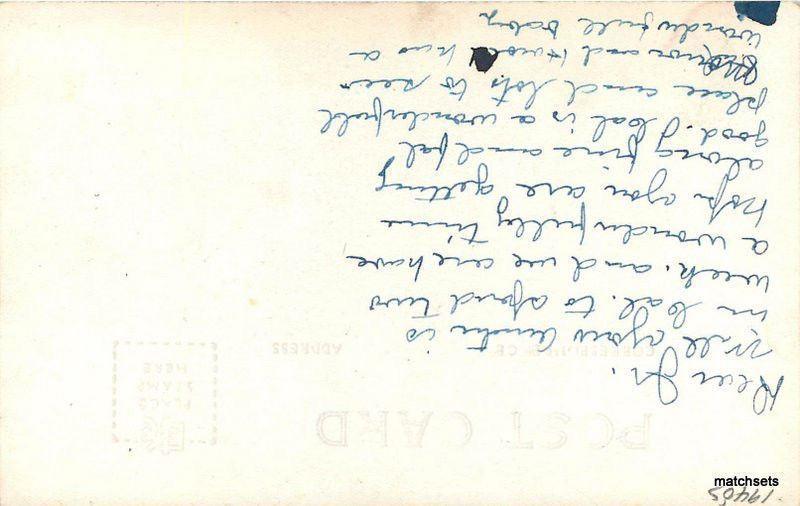 POST CARD
PLACE
STAMP
HERE
CORRESPONDENCE
ADDRESS
Dear Jr.
Well your Aunt is
in Cal. to spend two
week. and we are have
a wonderfully time
hope you are getting
along fine and feel
good. Cal is a wonderfull
place and lots to see
and has a
wonderfull baby
matchsets
1940s